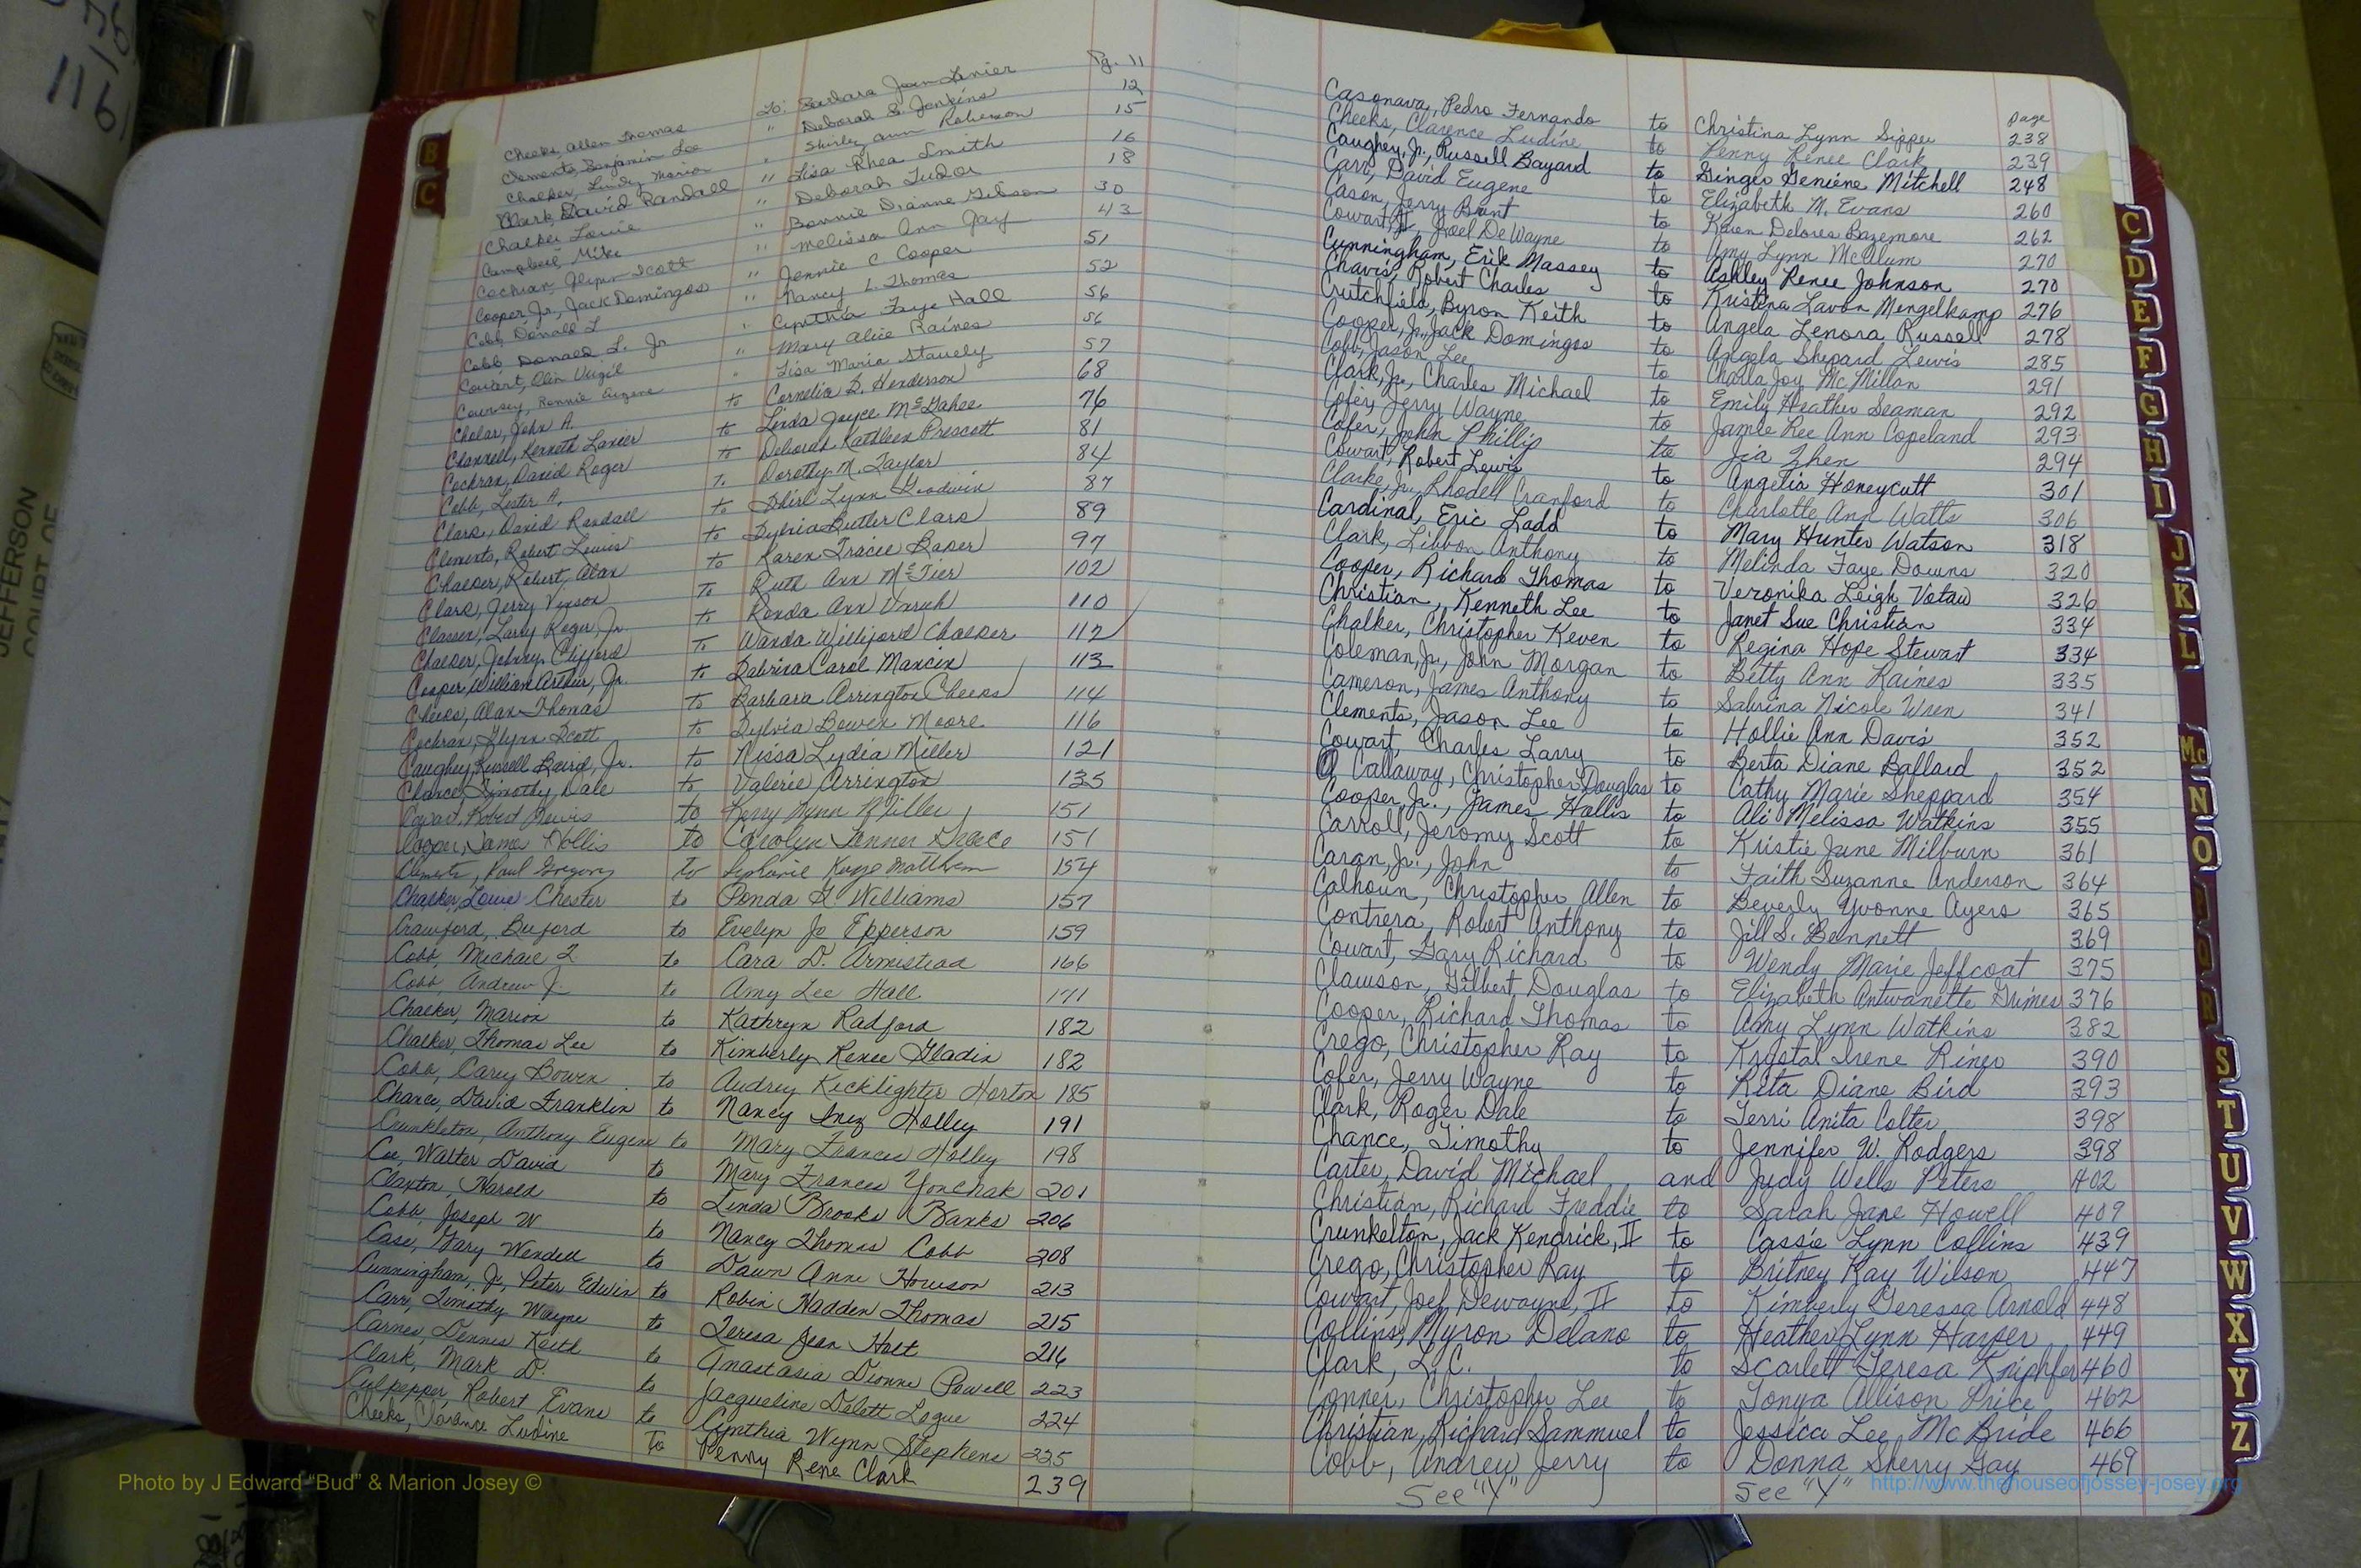 Pg. 11
Cheeks, Allen Thomas To: Barbara Jean Lanier
Clements, Benjamin Lee " Deborah S. Jenkins 12
Chalker, Lindy Marion " Shirley Ann Roberson 15
Clark, David Randall " Lisa Rhea Smith 16
Chalker Louie " Deborah Tudor 18
Campbell, Mike " Bonnie Dianne Gibson 30
Cochran, Glynn Scott " Melissa Ann Jay 43
Cooper, Jr., Jack Domingos " Jennie C. Cooper 51
Cobb, Donald L " Nancy L. Thomas 52
Cobb, Donald L. Jr " Cynthia Faye Hall 56
Cowart, Olin Virgil " Mary Alice Raines 56
Coursey, Ronnie Eugene " Lisa Maria Stavely 57
John A. to Cornelia B. Henderson 68
Channell, Kenneth Lanier to Linda Joyce McGahee 76
Cochran, David Roger to Deborah Kathleen Prescott 81
Cobb, Lester A. To Dorothy M. Taylor 84
Clark, David Randall to Lynn Goodwin 87
Clements, Robert Lewis to Sylvia Butler Clark 89
Chalker, Robert Alan to Karen Tracie Baker 97
Clark, Jerry Vinson To Ruth Ann McTier 102
Larry Roger, Jr. to Ronda Ann 110
Chalker, Johnny Clifford To Wanda Williford Chalker 112
Cooper, William Arthur, Jr. to Sabrina Carol 113
Cheeks, Alan Thomas to Barbara Arrington Cheeks 114
Cochran, Glynn Scott to Sylvia Bowen Moore 116
Caughey, Russell Baird, Jr. to Nissa Lydia Miller 121
Chance, Timothy Dale to Valerie Arrington 135
Cowart, Robert Lewis to Kerry Wynn Miller 151
Cooper, James Hollis to Carolyn Tanner 151
Clements, Paul Gregory to Kaye Matthews 154
Chalker, Louie Chester to Ponda G Williams 157
Crawford, Buford to Evelyn Jo Epperson 159
Cobb, Michael L to Cara D. Armistead 166
Cobb, Andrew J. to Amy Lee Hall 171
Chalker, Marion to Kathryn Radford 182
Chalker, Thomas Lee to Kimberly Renee Gladin 182
Cobb, Carey Bowen to Audrey Kicklighter Horton 185
Chance, David Franklin to Nancy Inez Holley 191
Crunkleton, Anthony Eugene to Mary Frances Holley 198
Coe, Walter David to Mary Frances Yonchak 201
Claxton, Harold to Linda Brooks Banks 206
Cobb, Joseph W to Nancy Thomas Cobb 208
Case, Gary Wendell to Dawn Anne Howson 213
Cunningham, Jr, Peter Edwin to Robin Hadden Thomas 215
Carr, Timothy Wayne to Teresa Jean Holt 216
Carnes, Dennis Keith to Anastasia Dionne Powell 223
Clark, Mark D. to Jacqueline Delett Logue 224
Culpepper, Robert Evans to Cynthia Wynn Stephens 225
Cheeks, Clarence Ludine To Penny Rene Clark 239
page
Casonava, Pedro Fernando to Christina Lynn Sipper 238
Cheeks, Clarence Ludine to Penny Renee Clark 239
Caughey, Jr., Russell Bayard to Ginger Geniene Mitchell 248
Carr, David Eugene to Elizabeth M. Evans 260
Cason, Jerry Brent to Karen Delores Bazemore 262
Cowart, Joel DeWayne to Amy Lynn McAlum 270
Cunningham, Erik Massey to Ashley Renee Johnson 270
Chavis, Robert Charles to Kristina Lavon Mengelkamp 276
Crutchfield, Byron Keith to Angela Lenora Russell 278
Cooper, Jr., Jack Domingos to Angela Shepard Lewis 285
Cobb, Jason Lee to Charla Joy McMillan 291
Clark, Jr., Charles Michael to Emily Heather Seaman 292
Cofer, Jerry Wayne to Jamie Ree Ann Copeland 293
Cofer, John Phillip to Jia Zhen 294
Cowart, Robert Lewis to Angelia Honeycutt 301
Clarke, Jr., Rhodell Cranford to Charlotte Ann Watts 306
Cardinal, Eric Ladd to Mary Hunter Watson 318
Clark, Libbon Anthony to Melinda Faye Downs 320
Cooper, Richard Thomas to Veronika Leigh Votaw 326
Christian, Kenneth Lee to Janet Sue Christian 334
Chalker, Christopher Keven to Regina Hope Stewart 334
Coleman, Jr., John Morgan to Betty Ann Raines 335
Cameron, James Anthony to Sabrina Nicole Wren 341
Clements, Jason Lee to Hollie Ann Davis 352
Cowart, Charles Larry to Berta Diane Ballard 352
Callaway, Christopher Douglas to Cathy Marie Sheppard 354
Cooper, Jr., James Hollis to Ali Melissa Watkins 355
Carroll, Jeromy Scott to Kristie June Milburn 361
Caran, Jr., John to Faith Suzanne Anderson 364
Calhoun, Christopher Allen to Beverly Yvonne Ayers 365
Contrera, Robert Anthony to Jill S. Bennett 369
Cowart, Gary Richard to Wendy Marie Jeffcoat 375
Clawson, Gilbert Douglas to Elizabeth Antwanette Grimes 376
Cooper, Richard Thomas to Amy Lynn Watkins 382
Crego, Christopher Ray to Krystal Irene Riner 390
Cofer, Jerry Wayne to Rita Diane Bird 393
Clark, Roger Dale to Terri Anita Colter 398
Chance, Timothy to Jennifer W. Rodgers 398
Carter, David Michael and Judy Wells Peters 402
Christian, Richard Freddie to Sarah Jane Howell 409
Crunkelton, Jack Kendrick, II to Cassie Lynn Collins 439
Crego, Christopher Ray to Britney Kay Wilson 447
Cowart, Joel Dewayne, II to Kimberly Teressa Arnold 448
Collins, Myron Delano to Heather Lynn Harper 449
Clark, L.C. to Scarlett Teresa Kniphfer 460
Conner, Christopher Lee to Tonya Allison Price 462
Christian, Richard Sammuel to Jessica Lee McBride 466
Cobb, Andrew Jerry to Donna Sherry Gay 469
See "Y" See "Y"
B
C
C
D
E
F
G
H
I
J
K
L
Mc
N
O
R
S
T
U
V
W
X
Y
Z
JEFFERSON
COURT OF
Photo by J Edward "Bud" & Marion Josey ©
http://www.thehouseofjossey-josey.org